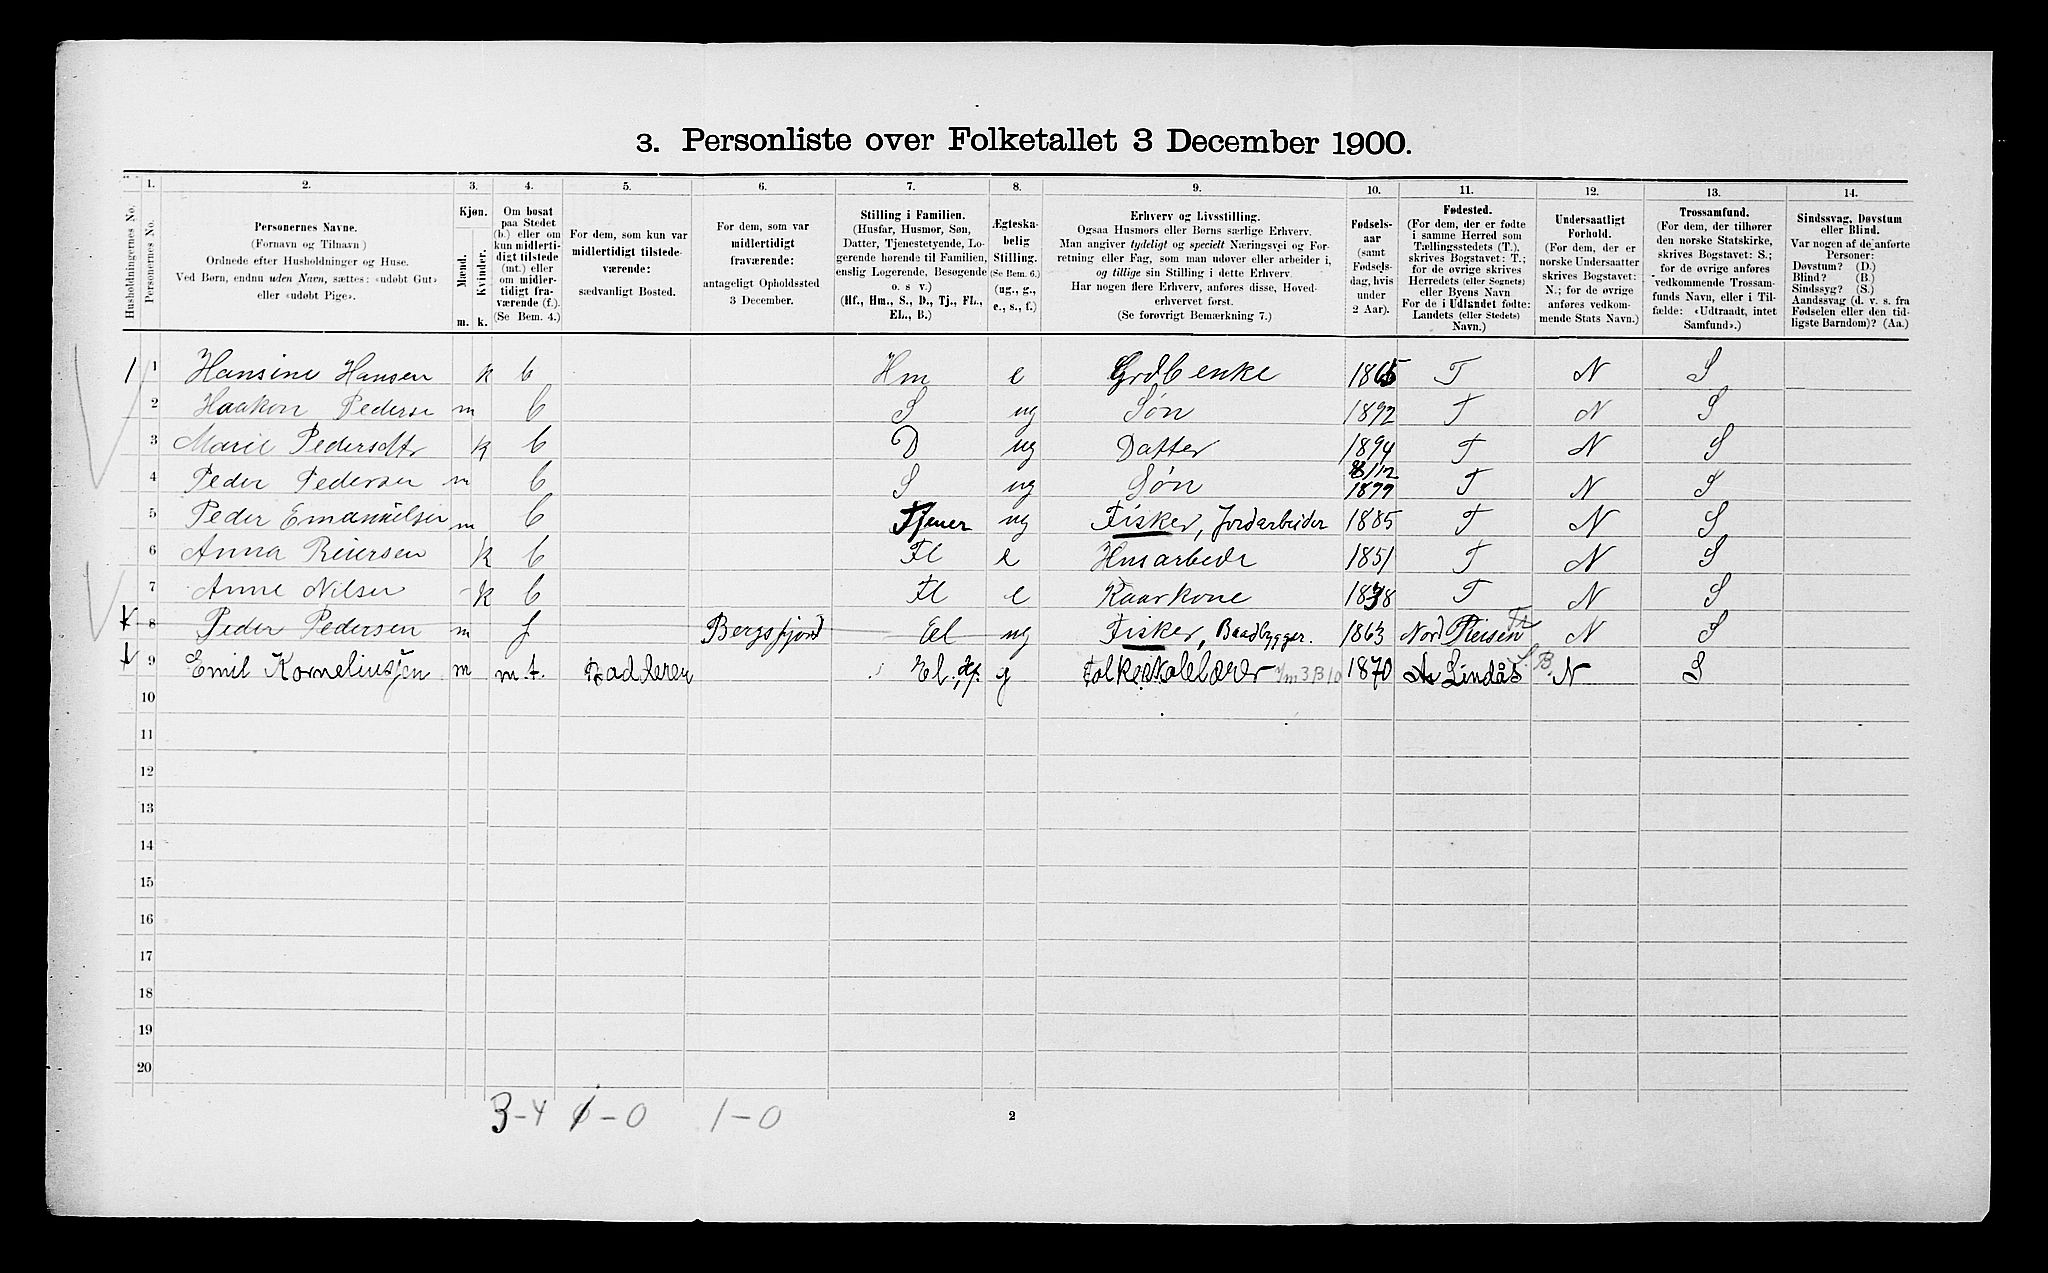 3. Personliste over Folketallet 3 December 1900.
Husholdningernes No.
1. Personernes No.
2. Personernes Navne. (Fornavn og Tilnavn) Ordnede efter Husholdninger og Huse. Ved Børn, endnu uden Navn, sættes: «udøbt Gut» eller «udøbt Pige».
3. Kjøn. Mænd. Kvinder. m. k.
4. Om bosat paa Stedet (b.) eller om kun midlertidigt tilstede (mt.) eller om midlertidigt fraværende (f.). (Se Bem. 4.)
5. For dem, som kun var midlertidigt tilstedeværende: sædvanligt Bosted.
6. For dem, som var midlertidigt fraværende: antageligt Opholdssted 3 December.
7. Stilling i Familien. (Husfar, Husmor, Søn, Datter, Tjenestetyende, Logerende hørende til Familien, enslig Logerende, Besøgende o. s v.) (Hf., Hm., S., D., Tj., FL., EL., B.)
8. Ægteskabelig Stilling. (Se Bem. 6.) (ug., g., e., s., f.)
9. Erhverv og Livsstilling. Ogsaa Husmors eller Børns særlige Erhverv. Man angiver tydeligt og specielt Næringsvei og Forretning eller Fag, som man udøver eller arbeider i, og tillige sin Stilling i dette Erhverv. Har nogen flere Erhverv, anføres disse, Hovederhvervet først. (Se forøvrigt Bemærkning 7.)
10. Fødselsaar (samt Fødselsdag, hvis under 2 Aar).
11. Fødested. (For dem, der er fødte i samme Herred som Tællingsstedets (T.), skrives Bogstavet: T.; for de øvrige skrives Herredets (eller Sognets) eller Byens Navn For de i Udlandet fødte: Landets (eller Stedets) Navn.)
12. Undersaatligt Forhold. (For dem, der er norske Undersaatter skrives Bogstavet: N.; for de øvrige anføres vedkommende Stats Navn.)
13. Trossamfund. (For dem, der tilhører den norske Statskirke, skrives Bogstavet: S.; for de øvrige anføres vedkommende Trossamfunds Navn, eller i Tilfælde: «Udtraadt, intet Samfund».)
14. Sindssvag, Døvstum eller Blind. Var nogen af de anførte Personer: Døvstum? (D.) Blind? (B.) Sindssyg? (S.) Aandssvag (d. v. s. fra Fødselen eller den tidligste Barndom)? (Aa.)
1 1 Hansine Hansen k b Hm e Grdb enke 1865 T N S
2 Haakon Pederse m b S ug Søn 1892 T N S
3 Marie Pedersdtr k b D ug Datter 1894 T N S
4 Peder Pedersen m b S ug Søn 8/12 1899 T N S
5 Peder Emanuelsen m b Tjener ug Fisker, Jordarbeider 1885 T N S
6 Anna Reiersen k b Fl e Husarbede 1851 T N S
7 Anne Nilsen k b Fl e Kaarkone 1838 T N S
8 Peder Pedersen m f Bergsfjord El ug Fisker, Baadbygger. 1863 Nord Reisen Tr N S
9 Emil Korneliussen m mt. El. Hf. g Folkeskolelærer 1870 Lindås S. B. N S
10
11
12
13
14
15
16
17
18
19
20
3-4 1-0 1-0
2